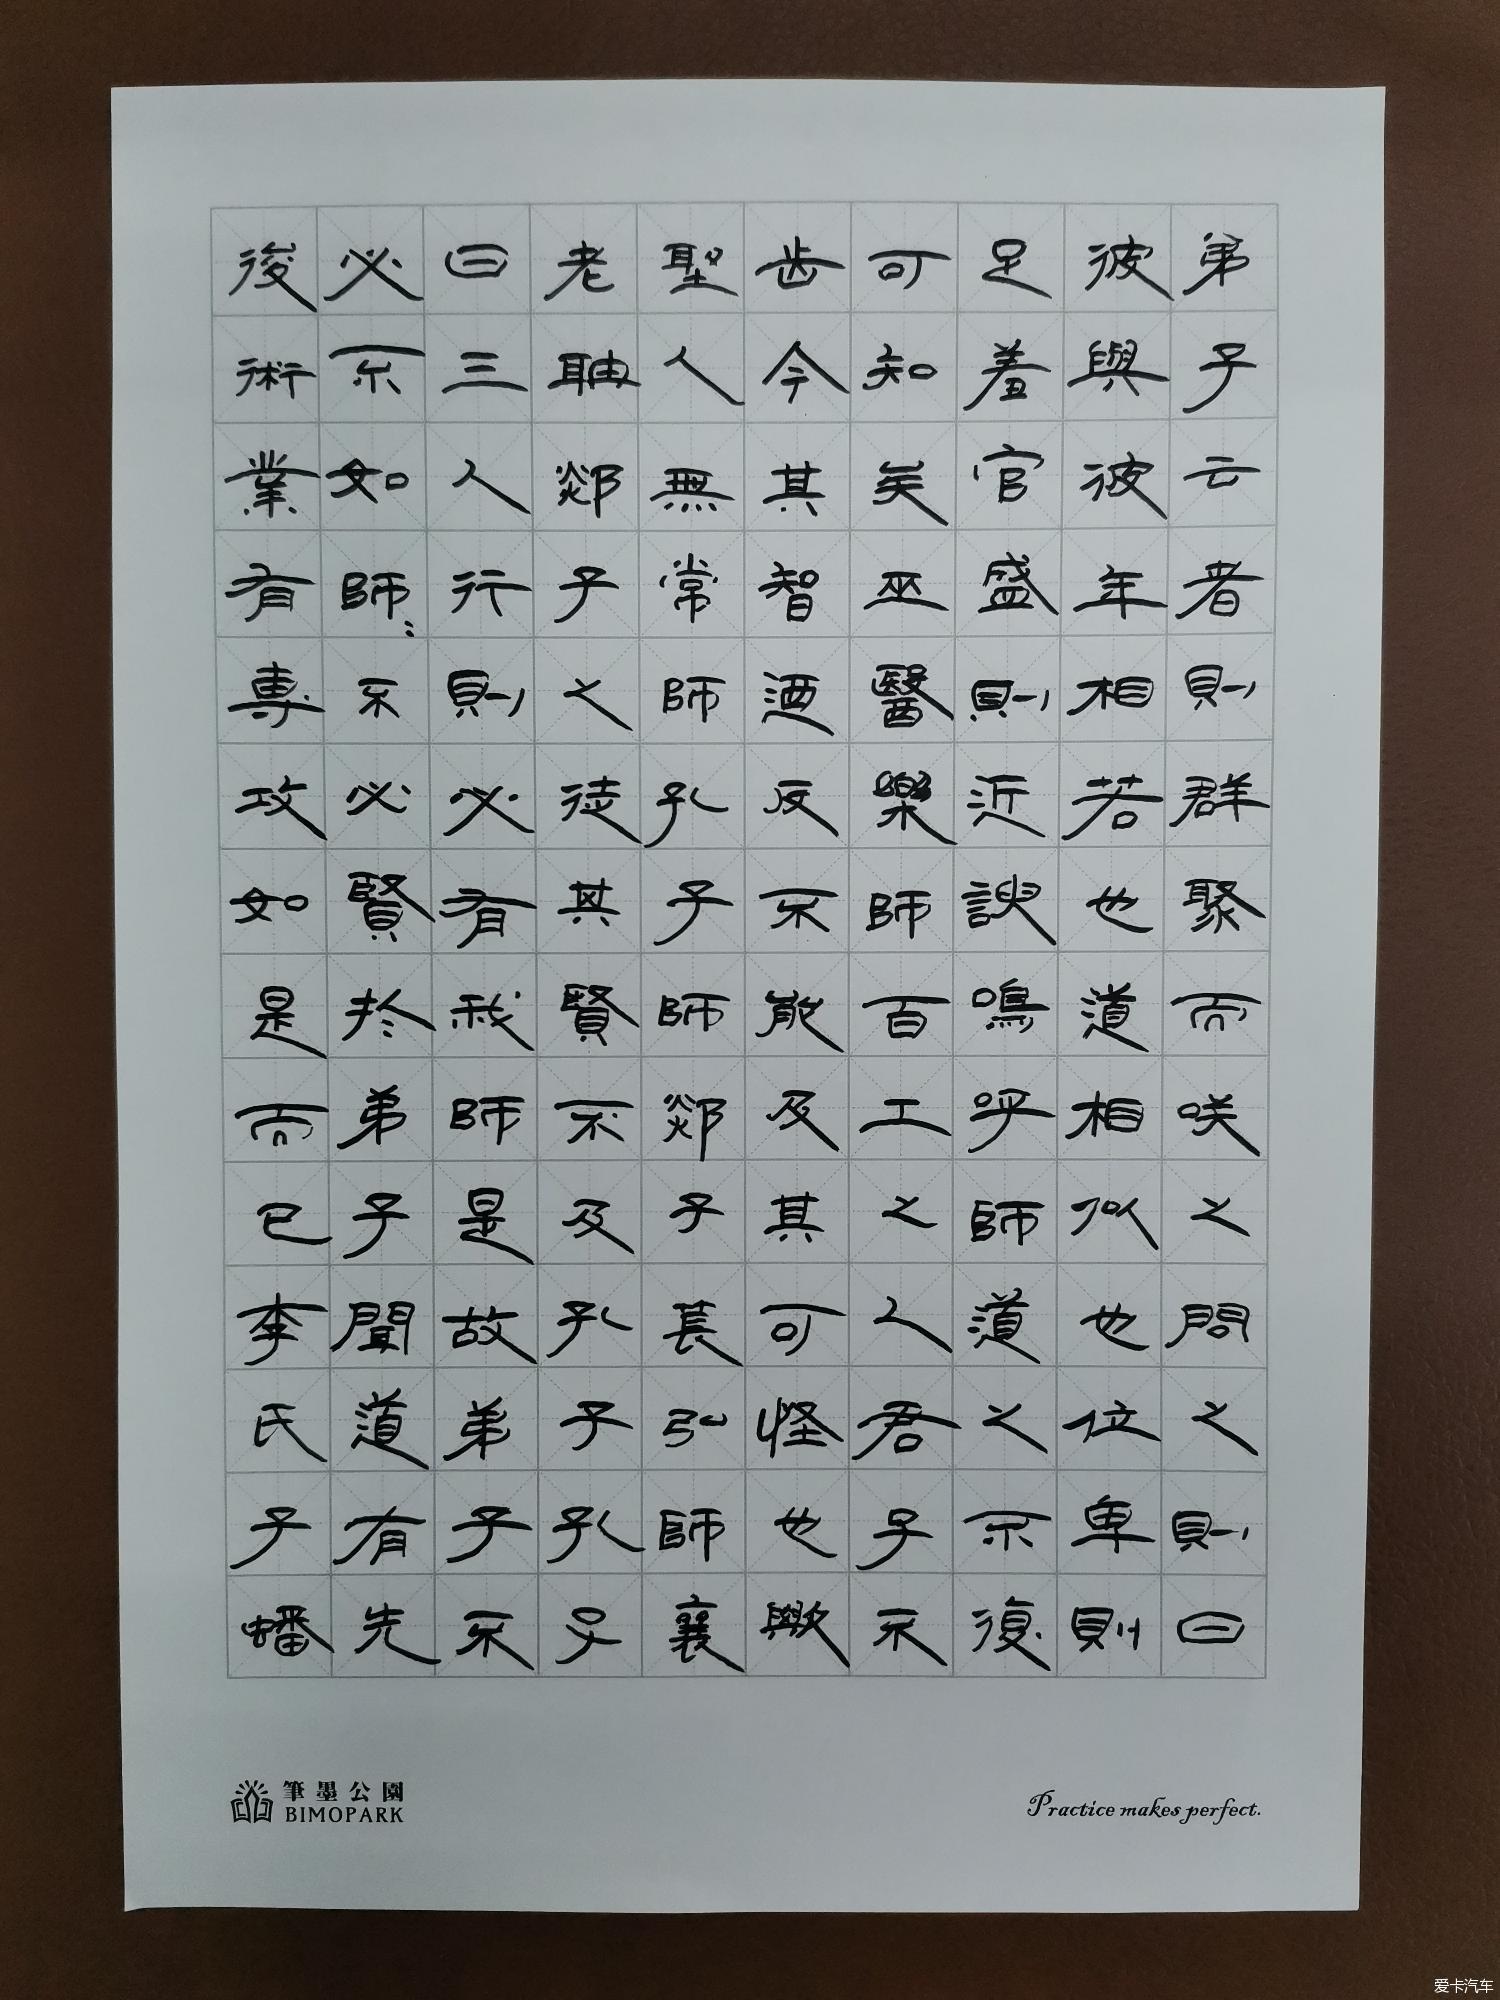 弟子云者則群聚而咲之問之則曰
彼與彼年相若也道相似也位卑則
足羞官盛則近諛鳴呼師道之不復
可知矣巫醫樂師百工之人君子不
齿今其智迺反不能及其可怪也歟
聖人無常師孔子師郯子萇弘師襄
老聃郯子之徒其賢不及孔子孔子
曰三人行則必有我師是故弟子不
必不如師〻不必賢於弟子聞道有先
後術業有專攻如是而已李氏子蟠
筆墨公園
BIMOPARK
Practice makes perfect.
爱卡汽车